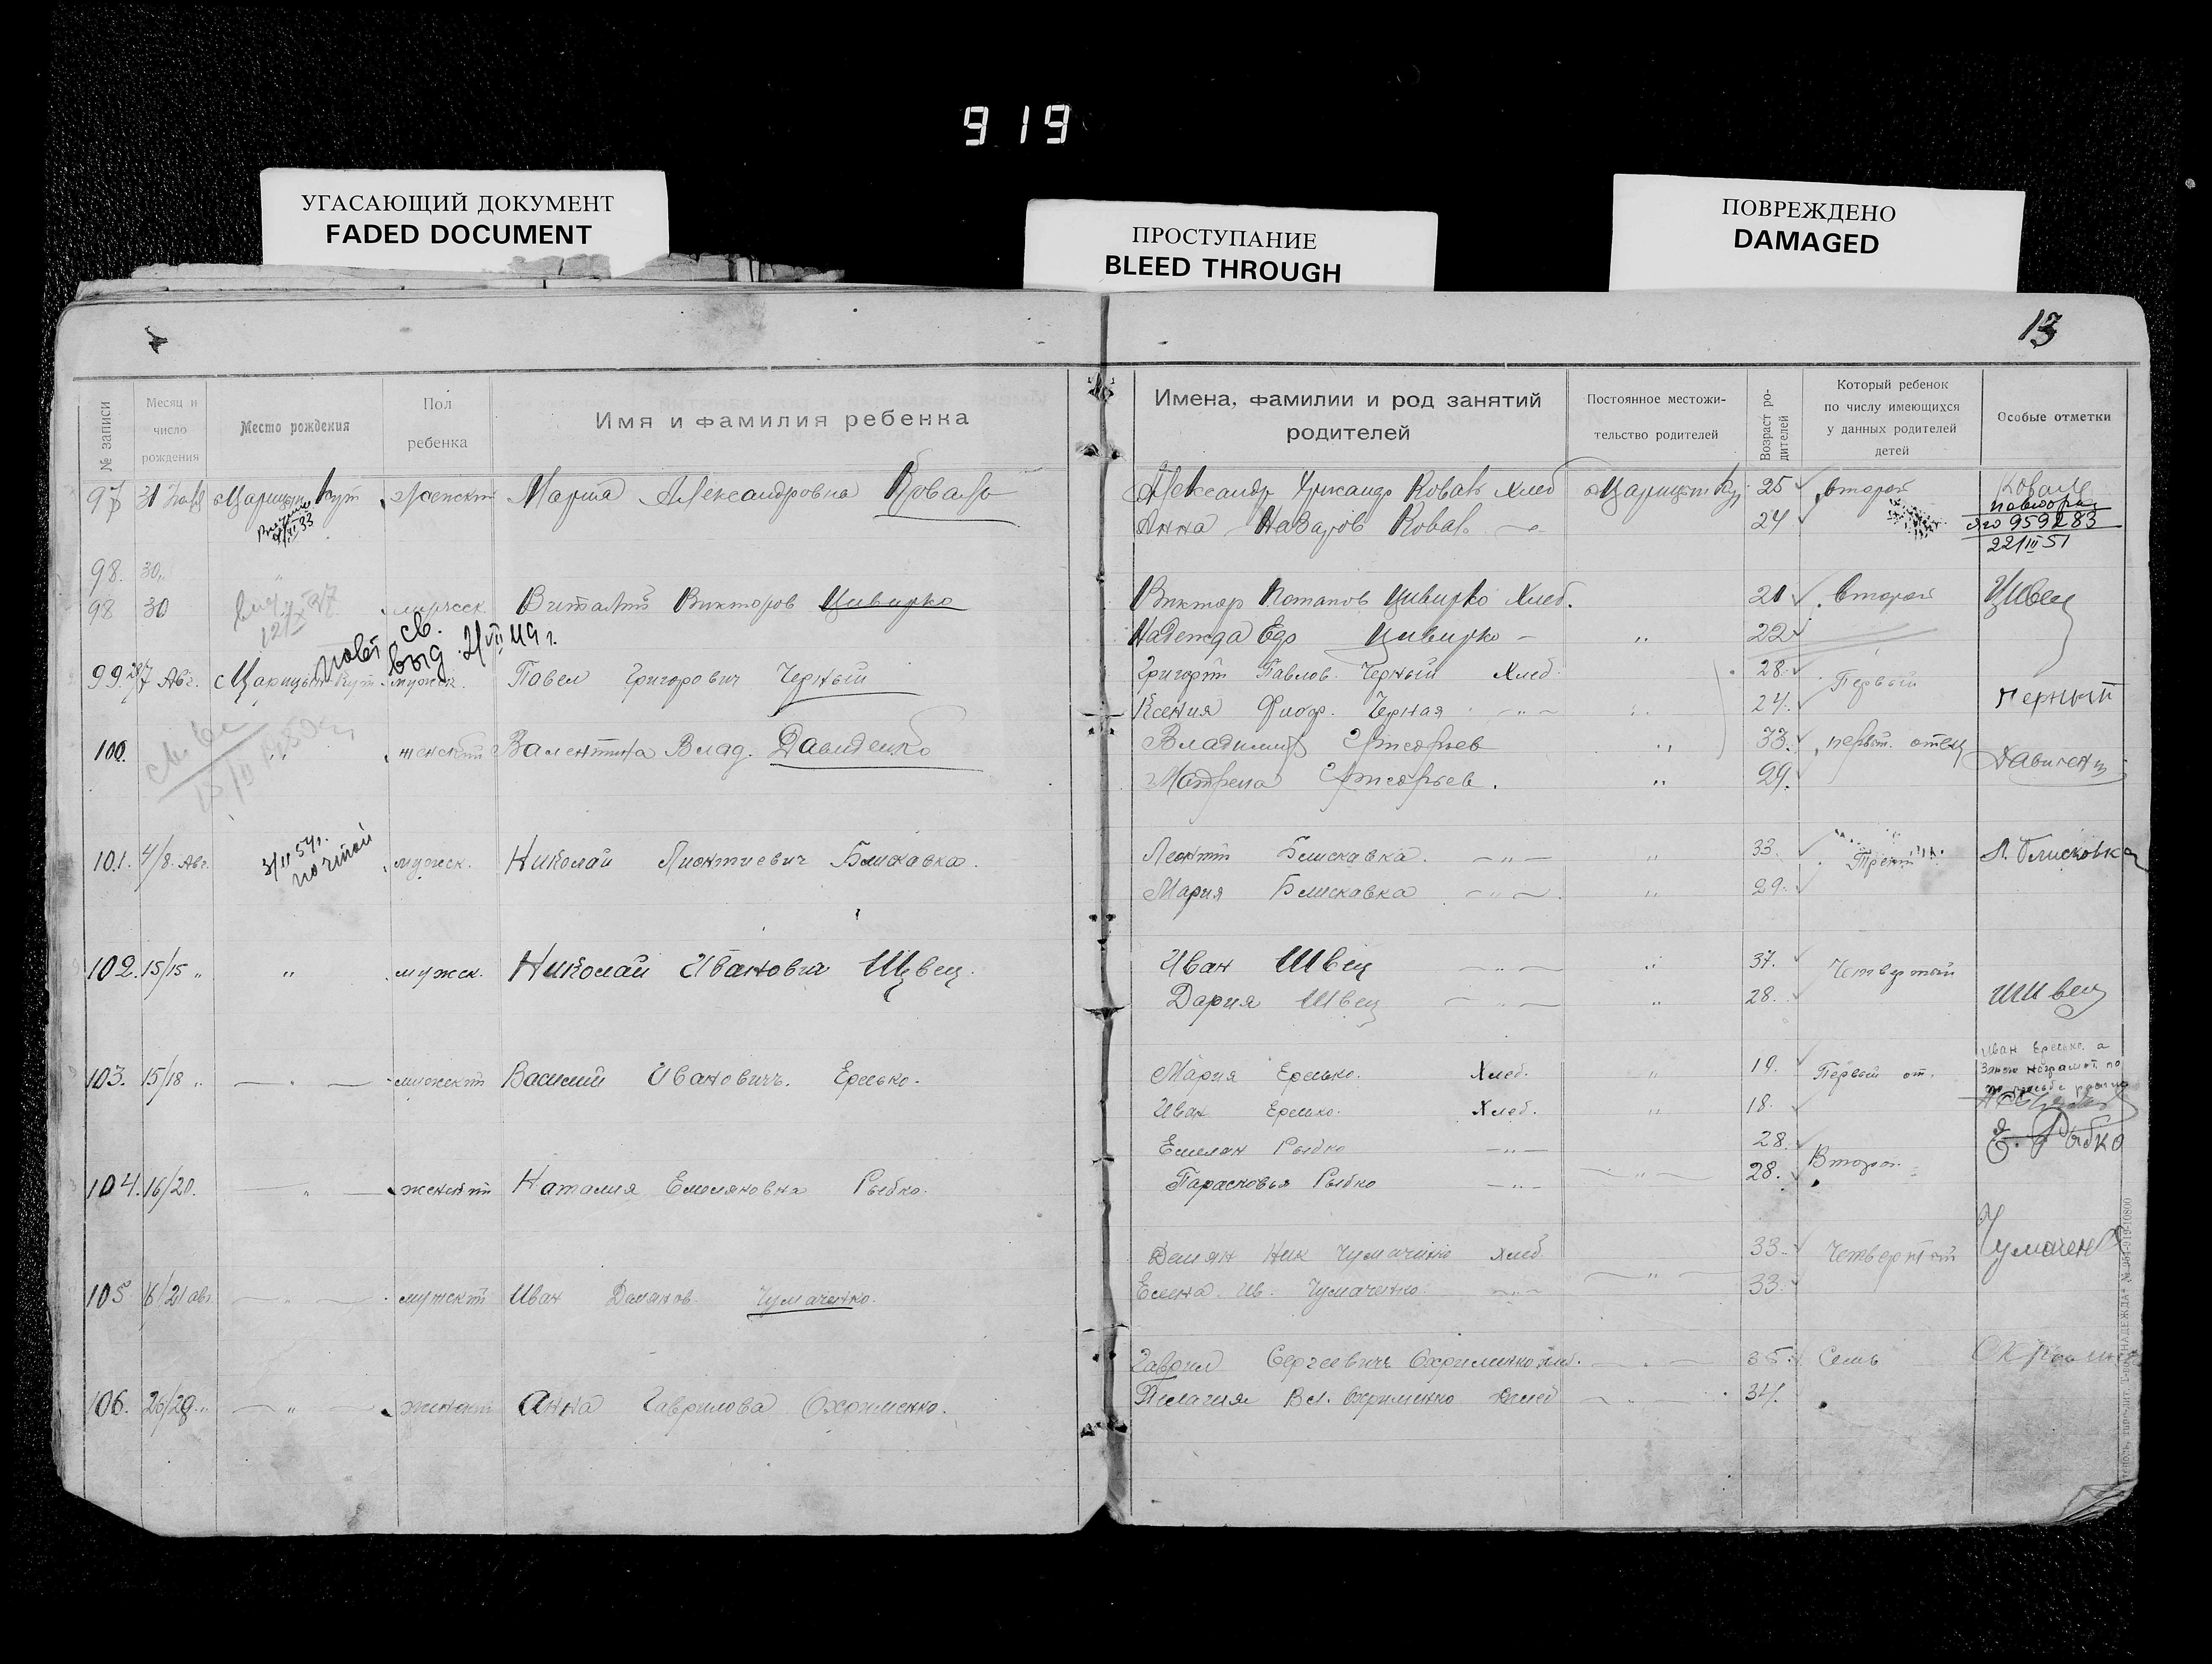 919
УГАСАЮЩИЙ ДОКУМЕНТ
FADED DOCUMENT
ПРОСТУПАНИЕ
BLEED THROUGH
ПОВРЕЖДЕНО
DAMAGED
13
№ записи
Месяц и число рождения
Место рождения
Пол ребенка
Имя и фамилия ребенка
Имена, фамилии и род занятий родителей
Постоянное местожительство родителей
Возраст родителей
Который ребенок по числу имеющихся у данных родителей детей
Особые отметки
97 31 Царицын Кут женский Мария Александровна Коваль Александр Коваль Хлеб Царицын Кут 25 второй Коваль
Анна Назаров Коваль 24
повторн
959283
22/III 51
98. 30 "
98 30 Виталий Викторов Цивирко Виктор Потапов Цивирко Хлеб. 21 второй
Надежда Цивирко " 22
повт. св. выд 2/VII 49 г.
99 7 Авг. Царицын Кут мужск. Павел Григорович Черный Григорий Павлов. Черный Хлеб 28 Первый Черный
Ксения Черная " 24
100. " женский Валентина Влад. Давиденко Владимир " 33. первый. отец
Матрена " 29.
почтой
101. 4/8. Авг. мужск. Николай Лионтиевич Блискавка. Леонтий Блискавка. " " 33. Трет Л. Блисковка
Мария Блискавка " " 29.
102. 15/15 " " мужск. Николай Иванович Швец. Иван Швец " " 37. Четвертый Швец
Дария Швец " " 28.
103. 15/18 " " мужский Василий Ивановичъ. Ересько. Мария Ересько. Хлеб. " 19. Первый от. Иван Ересько. а
Иван Ересько. Хлеб. " 18.
104. 16/20. " женский Наталия Емеляновна Рыбко. Емелян Рыбко " 28. Второй Е. Рыбко
Парасковья Рыбко " " 28.
105 16/21 авг " мужский Иван Демянов. Чумаченко. Демян Ник Чумаченко хлеб 33. Четвертый Чумаченко
Елена Ив. Чумаченко. " " 33.
106. 26/29. " " женский Анна Гаврилова Охрименко. Гаврил Сергеевичъ Охрименко хлеб. " 35. Семь
Пелагия Вл. Охрименко хлеб " 34.